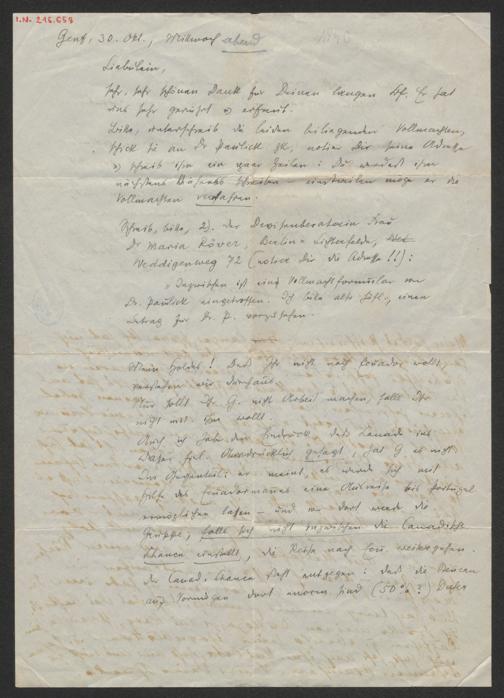 I.N. 216.658
Genf, 30. Okt., Mittwoch abend
1940
Liebülein,
sehr, sehr schönen Dank für Deinen langen Bf. Er hat
uns sehr gerührt u erfreut.
Bitte, unterschreib die beiden beiliegenden Vollmachten,
schick sie an Dr Paulick zk, notier Dir seine Adresse
u schreib ihm ein paar Zeilen: Du werdest ihm
nächstens Näheres schreiben – einstweilen möge er die
Vollmachten verwahren.
Schreib, bitte, 2). der Devisenberaterin Frau
Dr Maria Röver, Berlin-Lichterfelde,
Weddigenweg 72 (notier Dir die Adresse!!):
"Inzwischen ist ein Vollmachtformular von
Dr. Paulick eingetroffen. Ich bitte also höfl., einen
Antrag für Dr. P. vorzusehen.
Mein Holdes! Daß Ihr nicht nach Ecuador wollt,
verstehen wir durchaus.
Nur sollt Dr. G. nicht Arbeit machen, falls Ihr
nicht mit ihm wollt.
Auch ich habe den Eindruck, daß Canada
Ausdrücklich gesagt, hat G es nicht.
Im Gegenteil: er meint, es werde sich mit
Hilfe des Ecuadormannes eine Ausreise bis Portugal
ermöglichen lassen – und von dort werde die
Gruppe, falls sich nicht inzwischen die Canadische
Chance einstellt, die Reise nach Ecu. weitergehen.
Der Canad. Chance steht entgegen: daß die Steuern
auf Vermögen dort enorm sind (50%?) Dieses